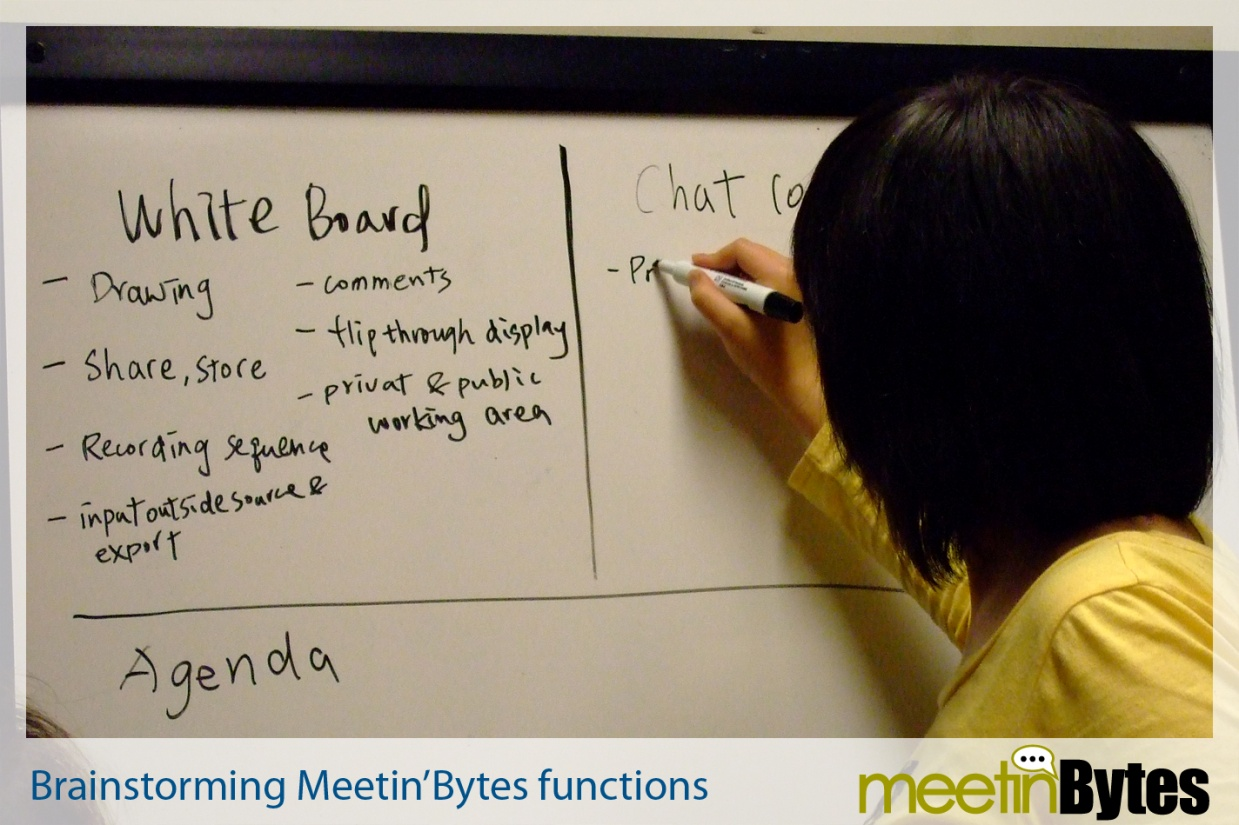 White Board
- Drawing
- Share, store
- Recording sequence
- input outside source &
export
- comments
- flip through display
- privat & public
working area
Chat
- Pr
Agenda
Brainstorming Meetin'Bytes functions
meetinBytes